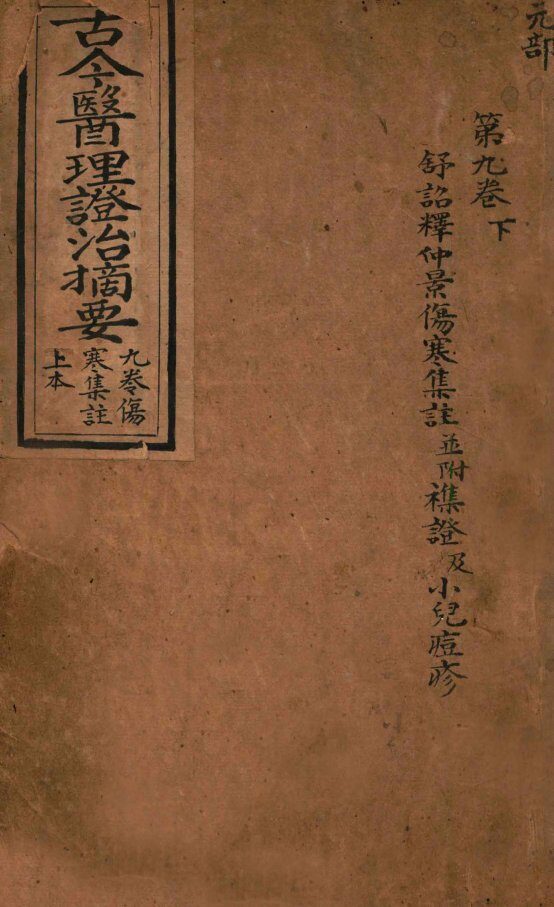 元部
第九卷下
舒詔釋仲景傷寒集註並附襍證及小兒痘疹
古今醫理證治摘要
九卷傷
寒集註
上本